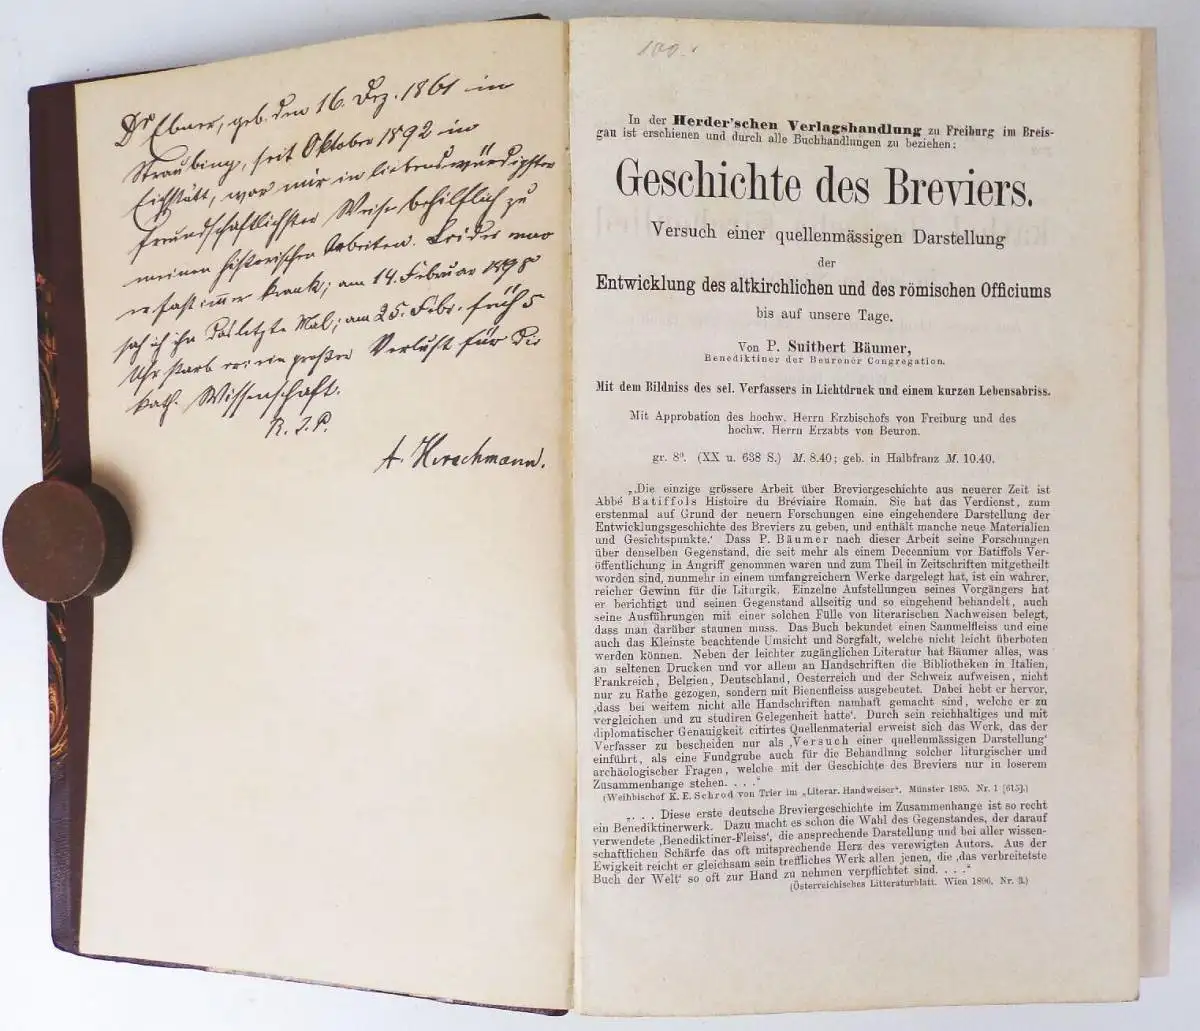 Dr Ebner, geb. den 16. Dez. 1861 in
Straubing, seit Oktober 1892 in
Eichstätt, war mir in liebenswürdigster
freundschaftlichster Weise behilflich zu
meinen historischen Arbeiten. Leider war
er fast immer krank; am 14. Februar 1898
sah ich ihn das letzte Mal; am 25. Febr. früh 5
Uhr starb er, ein großer Verlust für die
kath. Wissenschaft.
R. I. P.
A. Hirschmann.
100.
In der Herder'schen Verlagshandlung zu Freiburg im Breis-
gau ist erschienen und durch alle Buchhandlungen zu beziehen:
Geschichte des Breviers.
Versuch einer quellenmässigen Darstellung
der
Entwicklung des altkirchlichen und des römischen Officiums
bis auf unsere Tage.
Von P. Suitbert Bäumer,
Benediktiner der Beuroner Congregation.
Mit dem Bildniss des sel. Verfassers in Lichtdruck und einem kurzen Lebensabriss.
Mit Approbation des hochw. Herrn Erzbischofs von Freiburg und des
hochw. Herrn Erzabts von Beuron.
gr. 8°. (XX u. 638 S.) M. 8.40; geb. in Halbfranz M. 10.40.
„‚Die einzige grössere Arbeit über Breviergeschichte aus neuerer Zeit ist
Abbé Batiffols Histoire du Bréviaire Romain. Sie hat das Verdienst, zum
erstenmal auf Grund der neuern Forschungen eine eingehendere Darstellung der
Entwicklungsgeschichte des Breviers zu geben, und enthält manche neue Materialien
und Gesichtspunkte.‘ Dass P. Bäumer nach dieser Arbeit seine Forschungen
über denselben Gegenstand, die seit mehr als einem Decennium vor Batiffols Ver-
öffentlichung in Angriff genommen waren und zum Theil in Zeitschriften mitgetheilt
worden sind, nunmehr in einem umfangreichern Werke dargelegt hat, ist ein wahrer,
reicher Gewinn für die Liturgik. Einzelne Aufstellungen seines Vorgängers hat
er berichtigt und seinen Gegenstand allseitig und so eingehend behandelt, auch
seine Ausführungen mit einer solchen Fülle von literarischen Nachweisen belegt,
dass man darüber staunen muss. Das Buch bekundet einen Sammelfleiss und eine
auch das Kleinste beachtende Umsicht und Sorgfalt, welche nicht leicht überboten
werden können. Neben der leichter zugänglichen Literatur hat Bäumer alles, was
an seltenen Drucken und vor allem an Handschriften die Bibliotheken in Italien,
Frankreich, Belgien, Deutschland, Oesterreich und der Schweiz aufweisen, nicht
nur zu Rathe gezogen, sondern mit Bienenfleiss ausgebeutet. Dabei hebt er hervor,
‚dass bei weitem nicht alle Handschriften namhaft gemacht sind, welche er zu
vergleichen und zu studiren Gelegenheit hatte‘. Durch sein reichhaltiges und mit
diplomatischer Genauigkeit citirtes Quellenmaterial erweist sich das Werk, das der
Verfasser zu bescheiden nur als ‚Versuch einer quellenmässigen Darstellung‘
einführt, als eine Fundgrube auch für die Behandlung solcher liturgischer und
archäologischer Fragen, welche mit der Geschichte des Breviers nur in loserem
Zusammenhange stehen. . . .“
(Weihbischof K. E. Schrod von Trier im „Literar. Handweiser“. Münster 1895. Nr. 1 [615].)
„. . . Diese erste deutsche Breviergeschichte im Zusammenhange ist so recht
ein Benediktinerwerk. Dazu macht es schon die Wahl des Gegenstandes, der darauf
verwendete ‚Benediktiner-Fleiss‘, die ansprechende Darstellung und bei aller wissen-
schaftlichen Schärfe das oft mitsprechende Herz des verewigten Autors. Aus der
Ewigkeit reicht er gleichsam sein treffliches Werk allen jenen, die ‚das verbreitetste
Buch der Welt‘ so oft zur Hand zu nehmen verpflichtet sind. . . .“
(Österreichisches Litteraturblatt. Wien 1896. Nr. 3.)